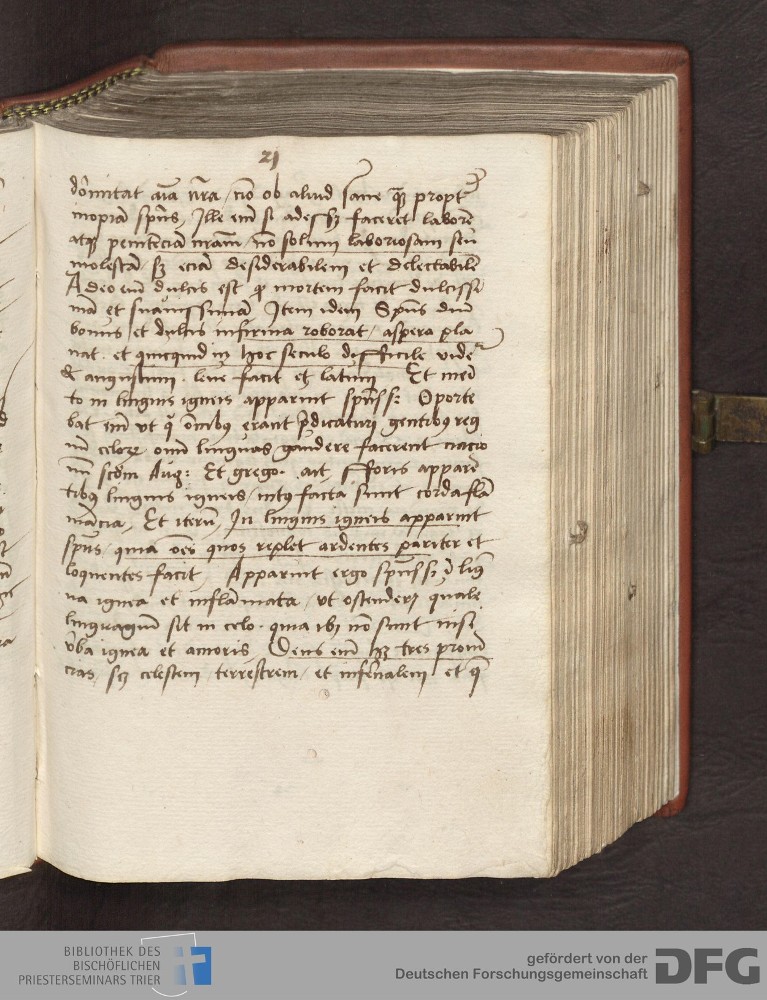 21
dormitat aīa nr̄a / nō ob aliud sane qꝫ propt
inopiā spūs, Ille eni si adesset faceret laborē
atqꝫ penitenciā nram̄ / nō solum laboriosam seu
molestā / sꝫ eciā desiderabilem et delectabilē
Adeo eni dulcis est qͥ mortem facit dulcissi
mā et suauissimā Item idem Spūs diui
bonus et dulcis infirma roborat / aspera pla
nat. et quicquid in hoc seculo difficile vide
angustum. leue facit et latum Et meri
to in linguis igneis apparuit spūss: Oporte
bat eni vt qͥ omībꝰ erant p̄dicaturi gentibꝰ reg
nū celoꝝ om̄i linguas gaudere facerent
scdm̄ Aug: Et grego. ait, fforis apparē
tibꝰ linguis igneis / intꝰ facta sunt corda flā
mācia, Et iterū, In linguis igneis apparuit
spūs, quia oēs quos replet ardentes pariter et
loquentes facit, Apparuit ergo spūss: ī lig̅
ua ignea et inflāmata, vt ostenderꝫ quale
linguagiū sit in celo. quia ibi nō sunt nisi
v̄ba ignea et amoris, Deus eni hꝫ tres prouī
cias, scꝫ celestem / terrestrem / et infernalem et qͥ
BIBLIOTHEK DES
BISCHÖFLICHEN
PRIESTERSEMINARS TRIER
gefördert von der
Deutschen Forschungsgemeinschaft DFG